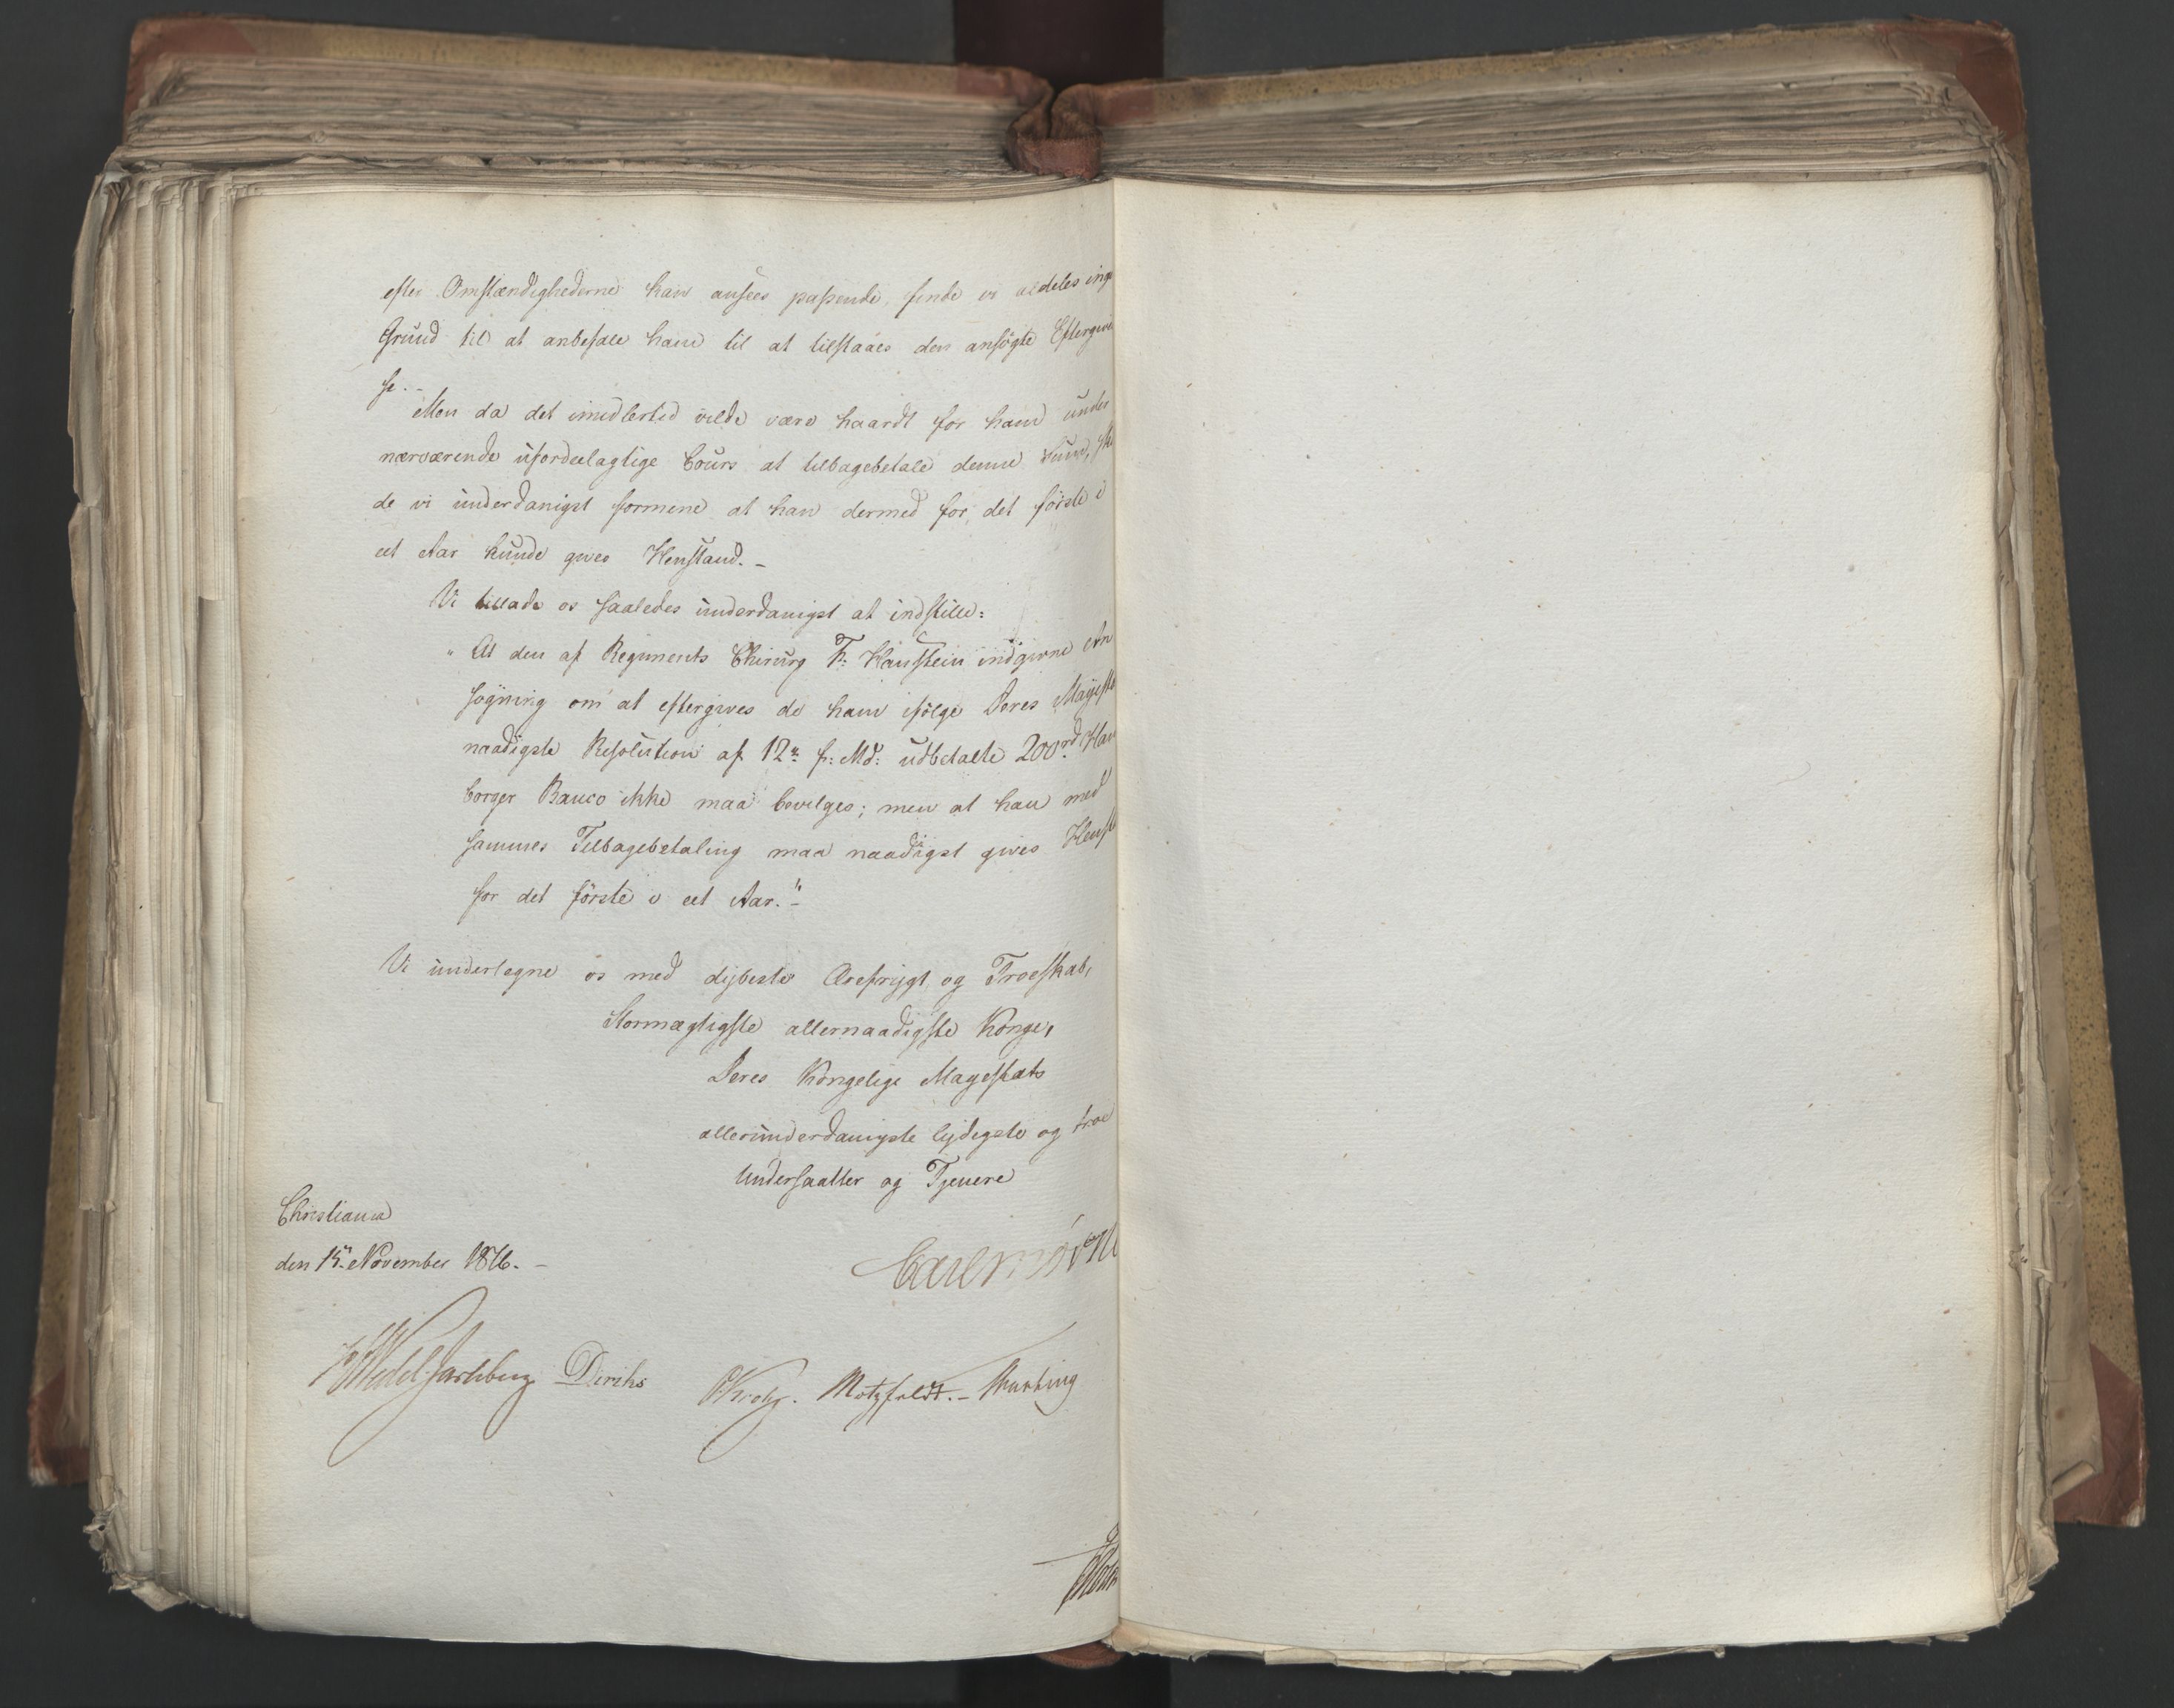 efter Omstændighederne kan ansees passende, finde vi aldeles inge
Grund til at anbefale ham til at tilstaaes den ansøgte Eftergivel
se. -
Men da det imidlertid vilde være haardt for ham under
nærværende ufordeelagtige Cours at tilbagebetale denne Sum,
de vi underdanigst formene at han dermed for det første i
eet Aar kunde gives Henstand. -
Vi tillade os saaledes underdanigst at indstille:
"At den af Regiments Chirurg Hanstein indgivne An
søgning om at eftergives de ham ifølge Deres Majestæ
naadigste Resolution af 12te f: Md: udbetalte 200rd Ham
borger Banco ikke maa bevilges; men at han med
sammes Tilbagebetaling maa naadigst gives Henst
for det første i eet Aar." -
Vi undertegne os med dybeste Ærefrygt og Troeskab,
Stormægtigste allernaadigste Konge,
Deres Kongelige Majestæts
allerunderdanigste lydigste og troe
Undersaatter og Tjenere
Christiania
den 15 November 1816. -
Carl Mörne
Wedel Jarlsberg Diriks Krohg. Motzfeldt. -
Holst